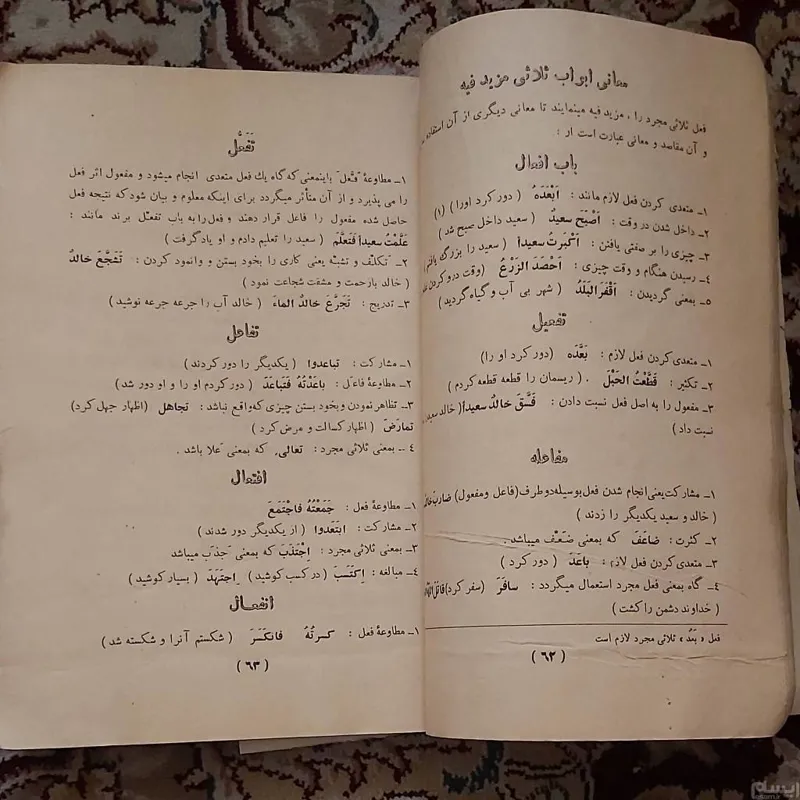 معانی ابواب ثلاثی مزید فیه
فعل ثلاثی مجرد را، مزید فیه مینمایند تا معانی دیگری از آن استفاده
و آن مقاصد و معانی عبارت است از :
باب افعال
۱ــ متعدی کردن فعل لازم مانند : اَبْعَدَهُ ( دور کرد اورا ) (۱)
۲ــ داخل شدن در وقت : اَصْبَحَ سعیدٌ ( سعید داخل صبح شد )
۳ــ چیزی را بر صفتی یافتن : اَکْبَرتُ سعیداً ( سعید را بزرگ یافتم )
۴ــ رسیدن هنگام و وقت چیزی : اَحْصَدَ الزَرْعُ (وقت درو کردن
۵ــ بمعنی گردیدن : اَقْفَرَ البَلَدُ ( شهر بی آب و گیاه گردید )
تفعیل
۱ــ متعدی کردن فعل لازم : بَعَّدَه (دور کرد او را)
۲ــ تکثیر : قَطَّعْتُ الحَبْلَ . ( ریسمان را قطعه قطعه کردم )
۳ــ مفعول را به اصل فعل نسبت دادن : فَسَّقَ خالدٌ سعیداً ( خالد سعید
نسبت داد )
مفاعله
۱ــ مشارکت یعنی انجام شدن فعل بوسیله دو طرف (فاعل ومفعول) ضاربَ
( خالد و سعید یکدیگر را زدند )
۲ــ کثرت : ضاعَفَ که بمعنی ضَعَّفَ میباشد .
۳ــ متعدی کردن فعل لازم : باعَدَ ( دور کرد )
۴ــ گاه بمعنی فعل مجرد استعمال میگردد : سافَرَ ( سفر کرد )
( خداوند دشمن را کشت )
فعل « بَعُدَ » ثلاثی مجرد لازم است
( ۶۲ )
تَفَعُّل
۱ــ مطاوعهٔ فَعَّلَ باینمعنی که گاه یك فعل متعدی انجام میشود و مفعول اثر فعل
را می پذیرد و از آن متأثر میگردد برای اینکه معلوم و بیان شود که نتیجه فعل
حاصل شده مفعول را فاعل قرار دهند و فعل را به باب تفعّل برند مانند :
عَلَّمْتُ سعیداً فَتَعَلَّمَ ( سعید را تعلیم دادم و او یادگرفت )
۲ــ تکلّف و تشبّه یعنی کاری را بخود بستن و وانمود کردن : تَشَجَّعَ خالدٌ
( خالد بازحمت و مشقت شجاعت نمود )
۳ــ تدریج : تَجَرَّعَ خالدٌ الماءَ ( خالد آب را جرعه جرعه نوشید )
تفاعل
۱ــ مشارکت : تباعدوا ( یکدیگر را دور کردند )
۲ــ مطاوعهٔ فاعَلَ : باعَدْتُهُ فَتَباعَدَ ( دور کردم او را و او دور شد )
۳ــ تظاهر نمودن و بخود بستن چیزی که واقع نباشد : تجاهل (اظهار جهل کرد )
تمارَضَ ( اظهار کسالت و مرض کرد )
۴ ــ بمعنی ثلاثی مجرد : تعالی، که بمعنی عَلا باشد .
افتعال
۱ــ مطاوعهٔ فعل : جَمَعْتُهُ فَاجْتَمَعَ
۲ــ مشارکت : ابتَعَدوا ( از یکدیگر دور شدند )
۳ــ بمعنی ثلاثی مجرد : اِجْتَذَبَ که بمعنی جَذَبَ میباشد
۴ــ مبالغه : اِکْتَسَبَ ( در کسب کوشید ) اِجتَهَدَ ( بسیار کوشید )
انفعال
۱ــ مطاوعهٔ فعل : کسرتُهُ فانکَسَرَ ( شکستم آنرا و شکسته شد )
( ۶۳ )